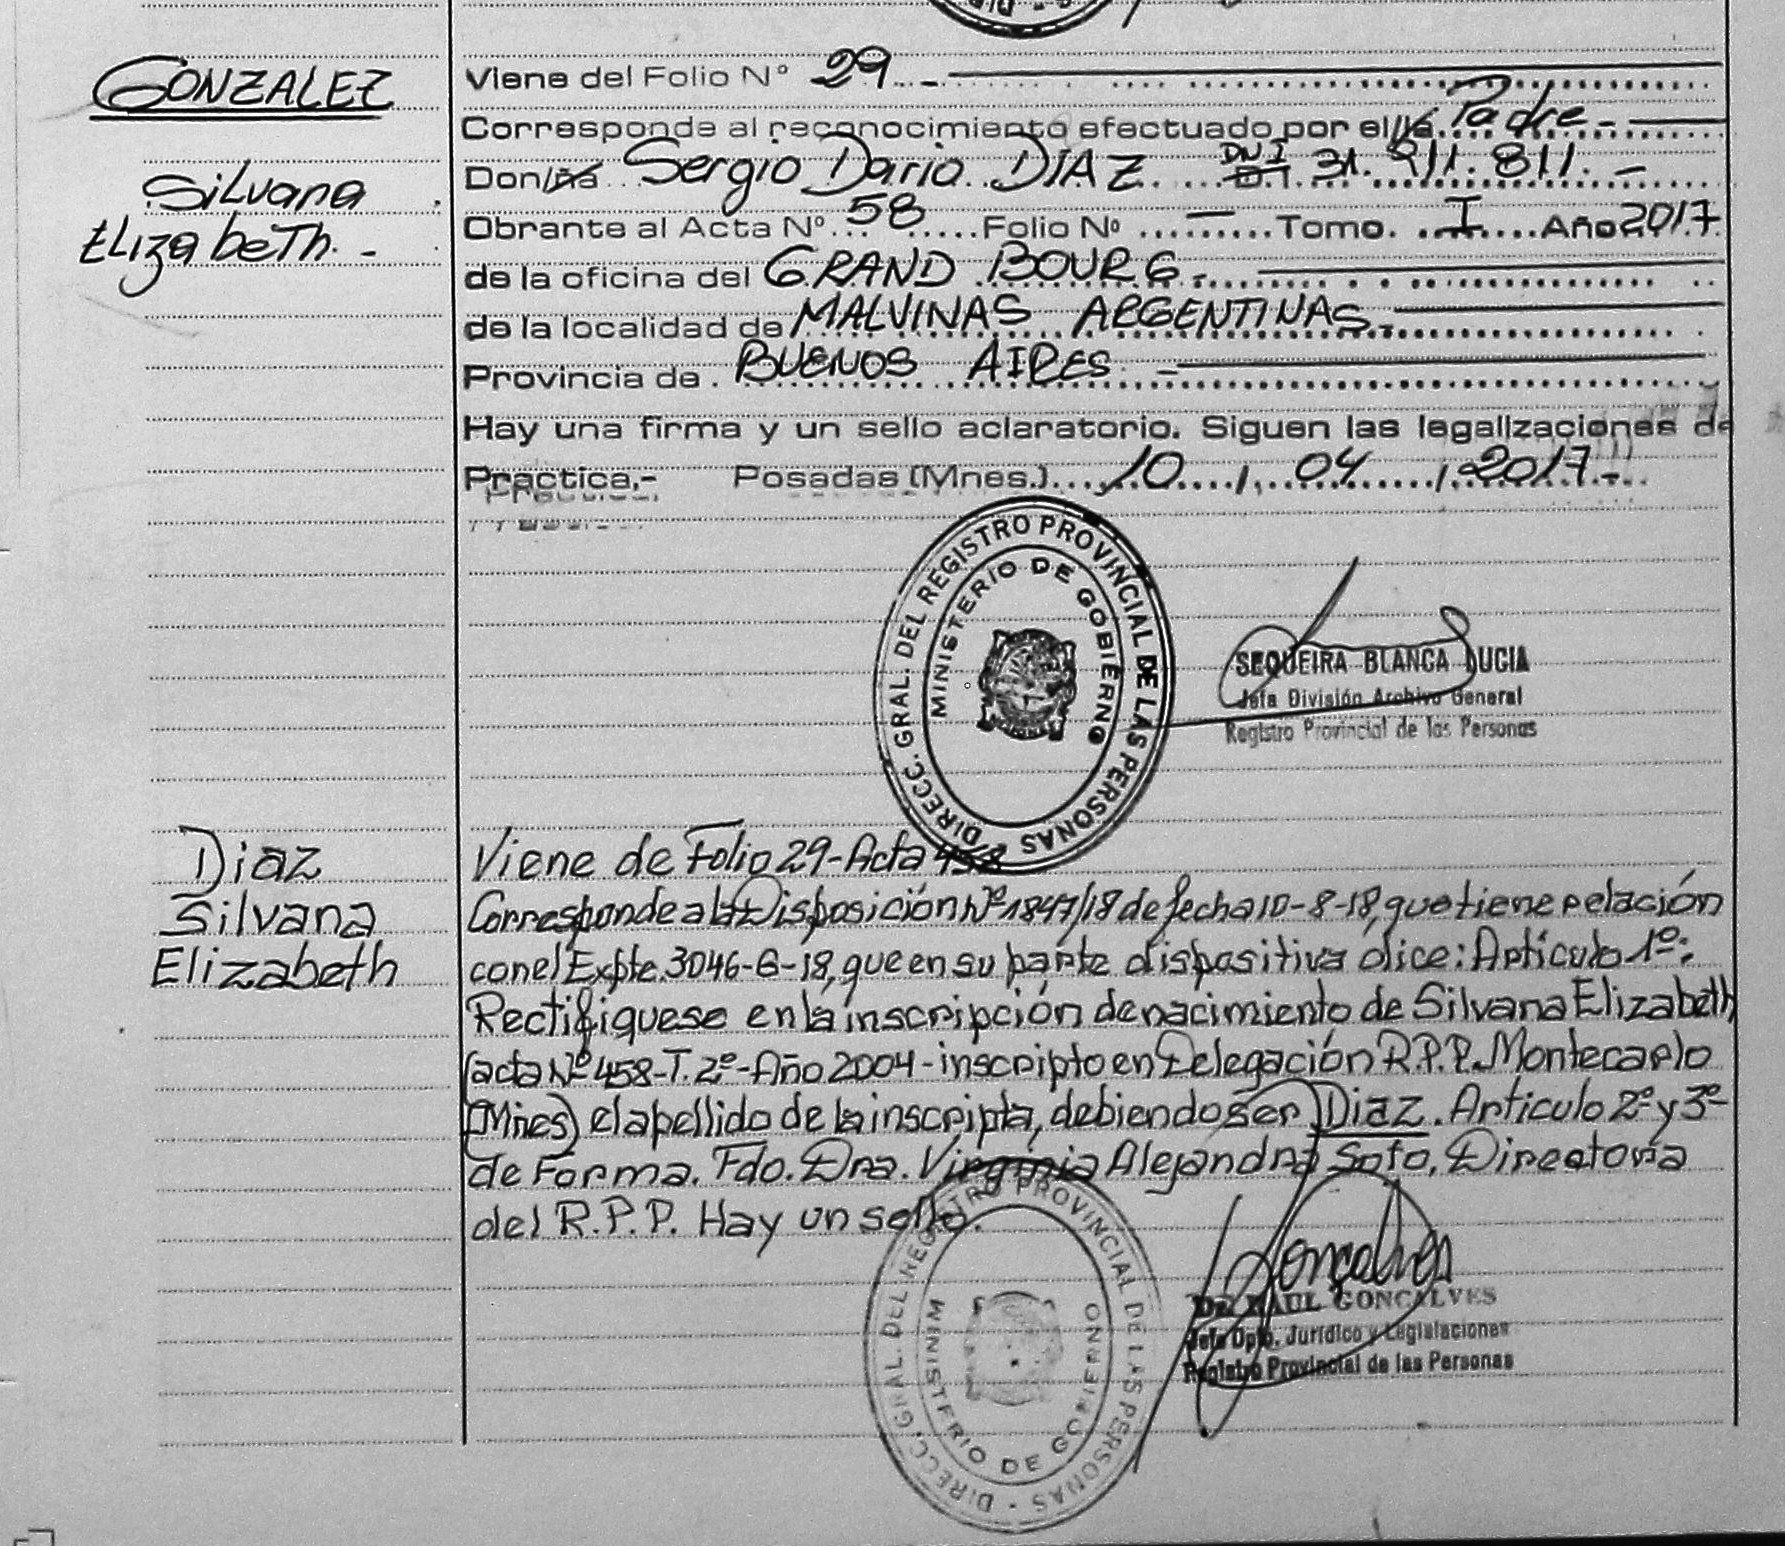 GONZALEZ
Silvana
Elizabeth. -
Viene del Folio Nº 29 . -
Corresponde al reconocimiento efectuado por el/la Padre -
Don/ña Sergio Dario DIAZ DNI D.I. 31. 811. -
Obrante al Acta Nº 58 Folio Nº — Tomo. I Año 2017
de la oficina del GRAND BOURG. -
de la localidad de MALVINAS ARGENTINAS. -
Provincia de BUENOS AIRES -
Hay una firma y un sello aclaratorio. Siguen las legalizaciones de
Practica.- Posadas (Mnes.) 10 / 04 / 2017 -
DIRECC. GRAL. DEL REGISTRO PROVINCIAL DE LAS PERSONAS
MINISTERIO DE GOBIERNO
SEQUEIRA BLANCA LUCIA
Jefa División Archivo General
Registro Provincial de las Personas
Diaz
Silvana
Elizabeth
Viene de Folio 29-Acta 458
Corresponde a la Disposición Nº 1847/18 de fecha 10-8-18, que tiene relación
con el Expte. 3046-G-18, que en su parte dispositiva dice: Artículo 1º:
Rectifiquese en la inscripción de nacimiento de Silvana Elizabeth
(acta Nº 458-T. 2º-Año 2004-inscripto en Delegación R.P.P. Montecarlo
(Mnes) el apellido de la inscripta, debiendo ser Diaz. Articulo 2º y 3º
de Forma. Fdo. Dra. Virginia Alejandra Soto, Directora
del R.P.P. Hay un sello.
DIRECC. GRAL. DEL REGISTRO PROVINCIAL DE LAS PERSONAS -
MINISTERIO DE GOBIERNO
Gonçalves
Dr. RAUL GONCALVES
Jefe Dpto. Jurídico y Legislaciones
Registro Provincial de las Personas